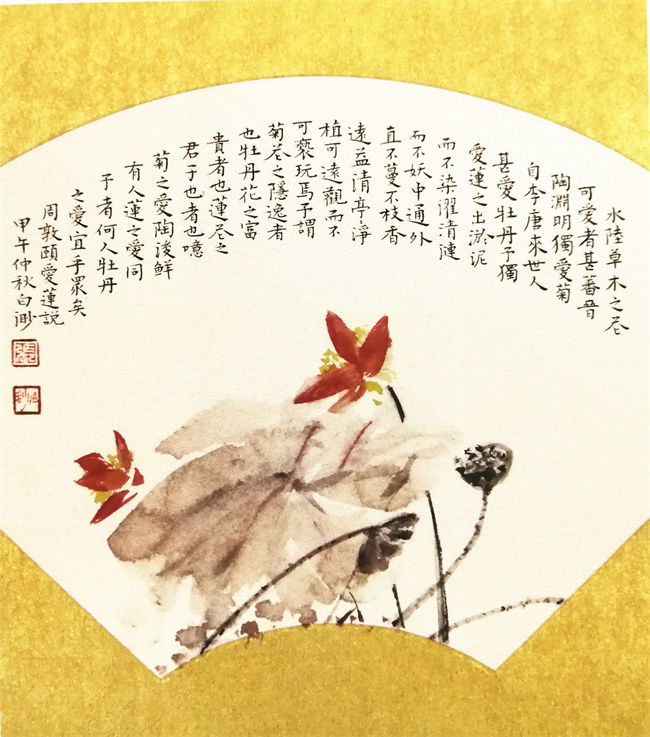 水陸草木之芲
可愛者甚蕃晉
陶淵明獨愛菊
自李唐來世人
甚愛牡丹予獨
愛蓮之出淤泥
而不染濯清漣
而不妖中通外
直不蔓不枝香
遠益清亭〻淨
植可遠觀而不
可褻玩焉予謂
菊芲之隱逸者
也牡丹花之富
貴者也蓮芲之
君子也者也噫
菊之愛陶後鮮
有人蓮之愛同
于者何人牡丹
之愛宜乎眾矣
周敦頤愛蓮説
甲午仲秋白